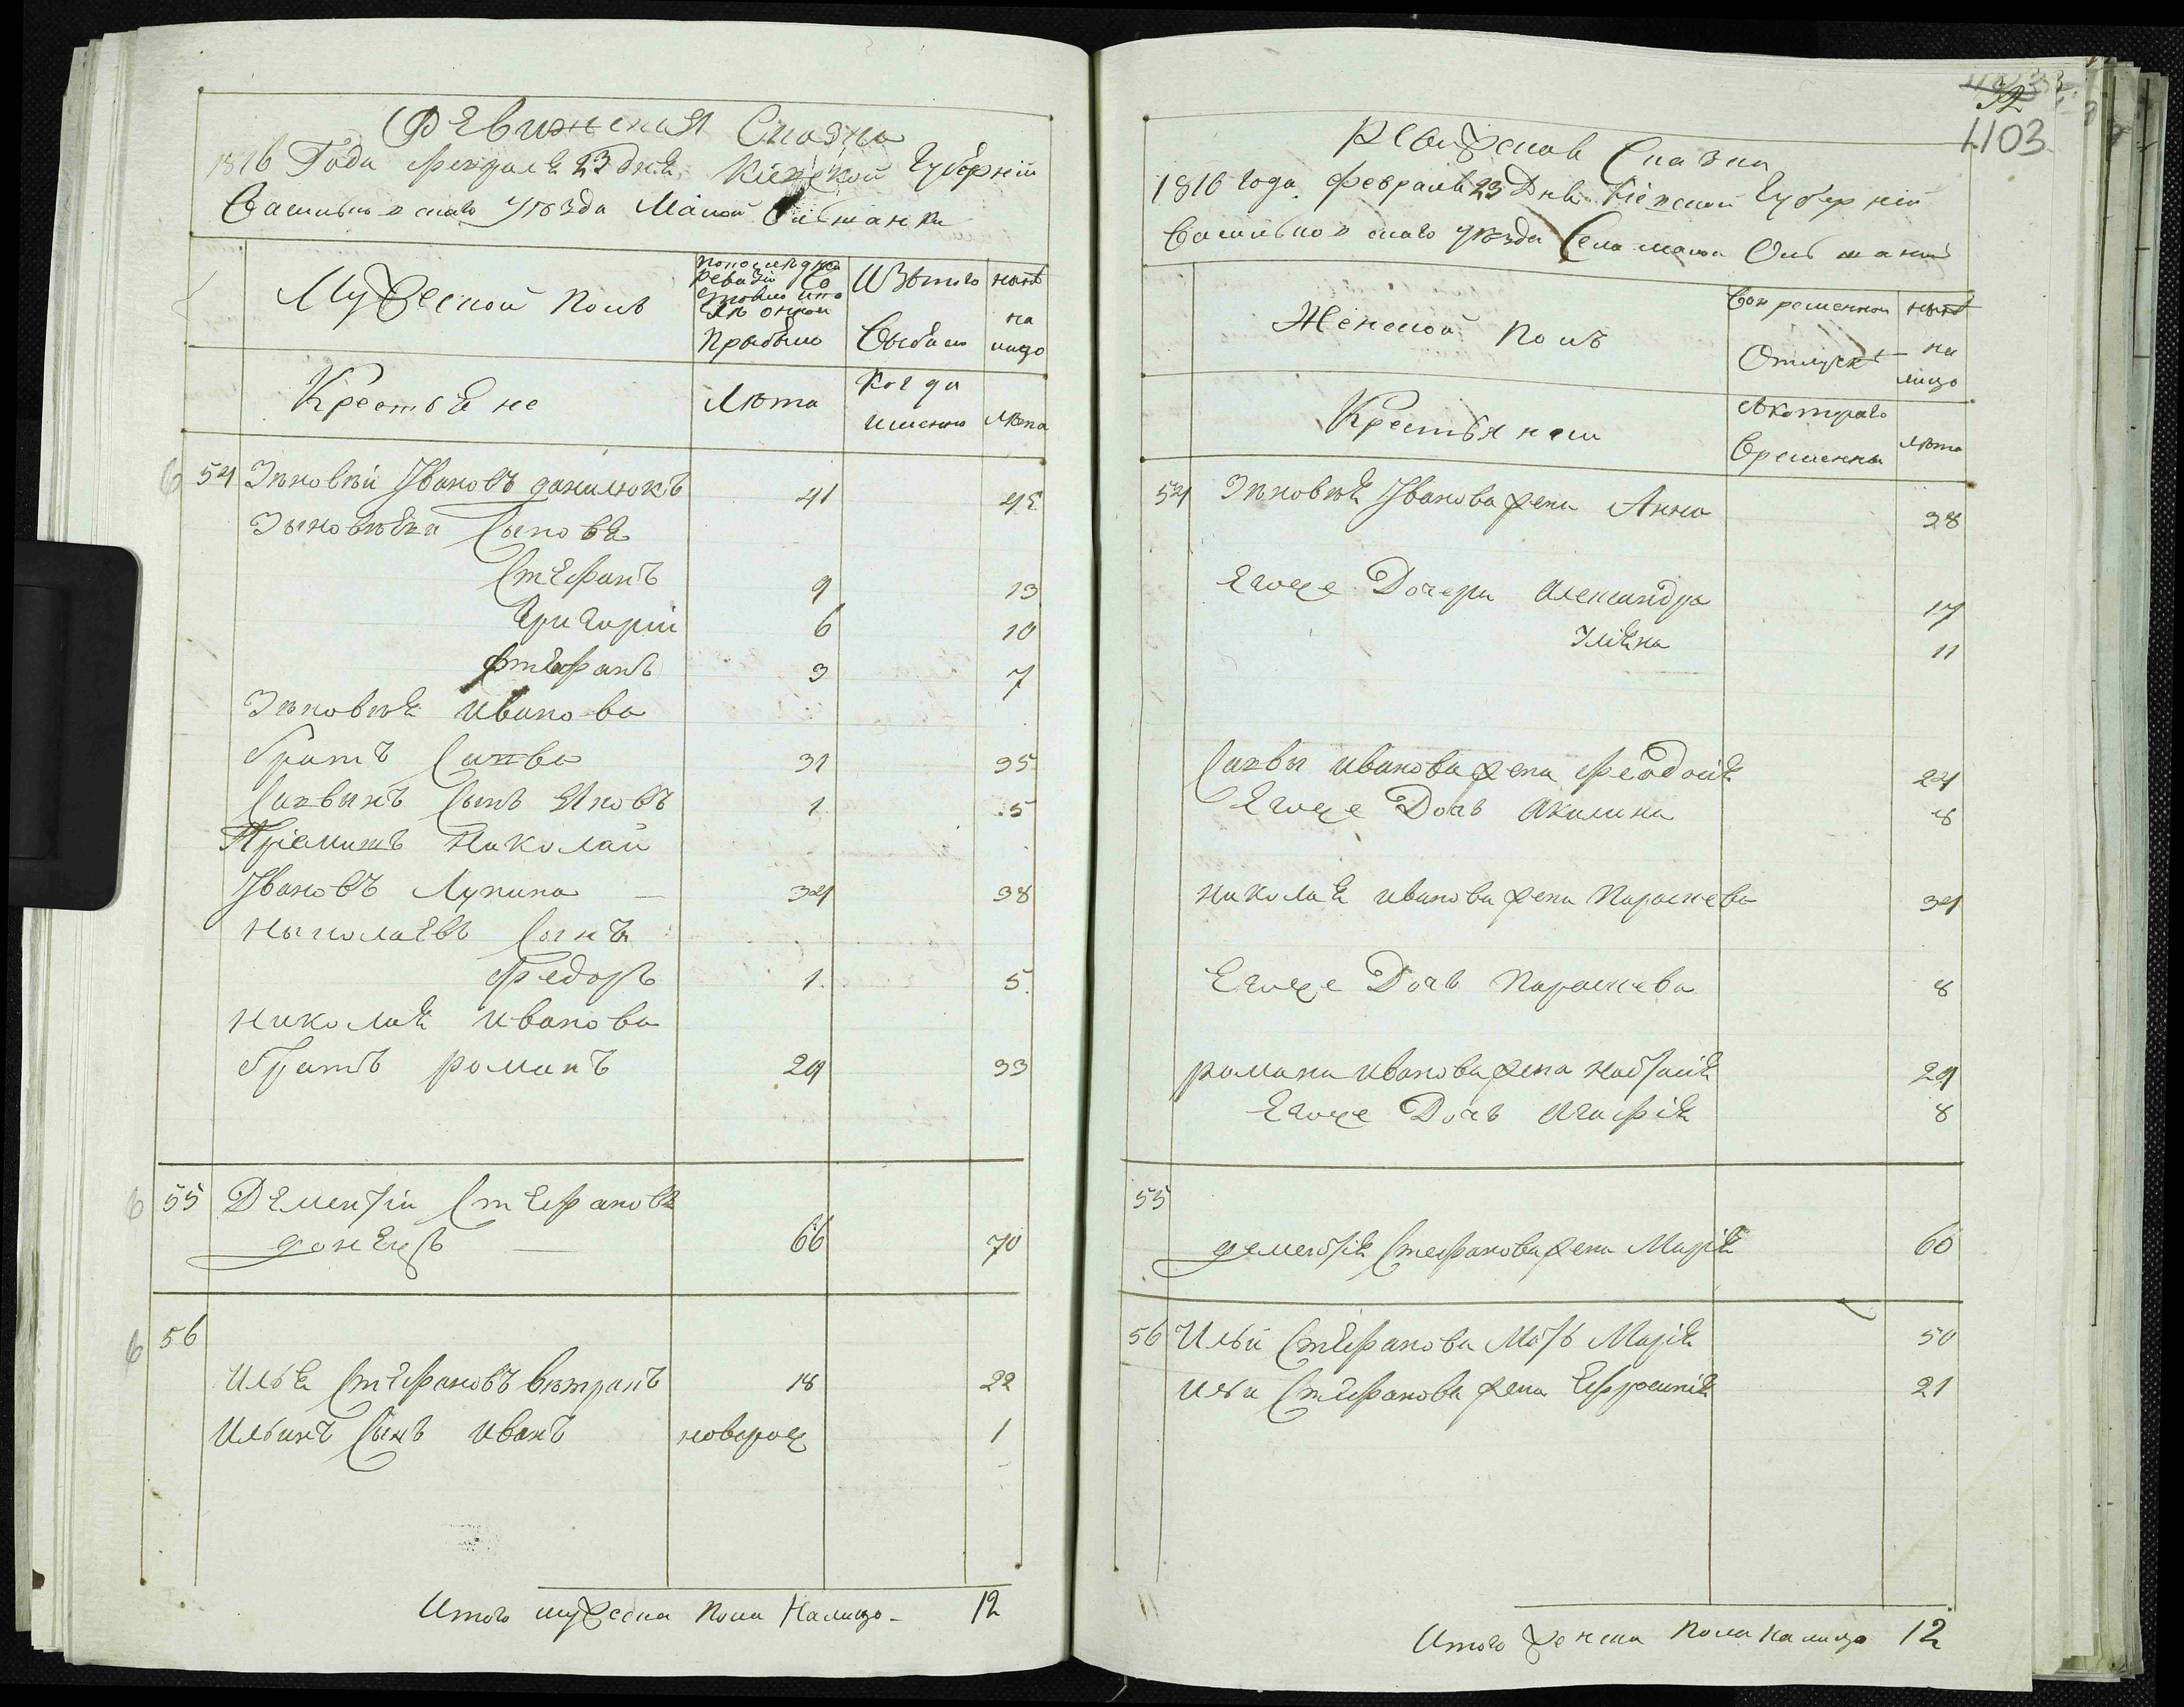 Ревижская Сказка
1816 Года февраля 23 дня Кіевской Губерніи
Васильковскаго уезда Малой Ольшанки
Мужеской полъ
по последней ревизіи состояло и после оной прыбыло
Изътого Выбыло
ныне на лицо
Крестьяне
Лѣта
когда именно
лѣта
6 54 Зѣновѣй Ивановъ данилюкъ 41 45
Зыновѣевы Сыновя
Стефанъ 9 13
Григорій 6 10
Стефанъ 3 7
Зѣновѣя Иванова
братъ Савва 31 35
Саввинъ Сынъ Яковъ 1 5
Пріемишъ Николай
Ивановъ Лупина — 34 38
Ныколаевъ Сынъ
Федоръ 1 5
Николая Иванова
братъ романъ 29 33
6 55 Дементій Стефановъ
донецъ — 66 70
6 56
Илья Стефановъ вѣтранъ 18 22
Ильинъ Сынъ Иванъ новорож 1
Итого мужеска пола Налицо - 12
1103
Ревижская Сказка
1816 года февраля 23 Дня Кіевской Губерніи
Васильковскаго уезда Села малой Ольшанки
Женской полъ
Вовременной Отлучкѣ
ныне на лицо
Крестьянки
съкотораго Времены
лѣта
54 Зѣновѣя Иванова жена Анна 38
Егоже Дочери Александра 17
Улѣяна 11
Саввы Иванова жена Феодосія 24
Егоже Дочь Акилина 8
Николая Иванова жена Параскева 34
Егоже Дочь Параскева 8
романа Иванова жена Настасія 29
Егоже Дочь Агафія 8
55
дементія Стефанова жена Марія 60
56 Ильи Стефанова Мать Марія 50
Ильи Стефанова жена Ефросинія 21
Итого женска пола на лицо 12